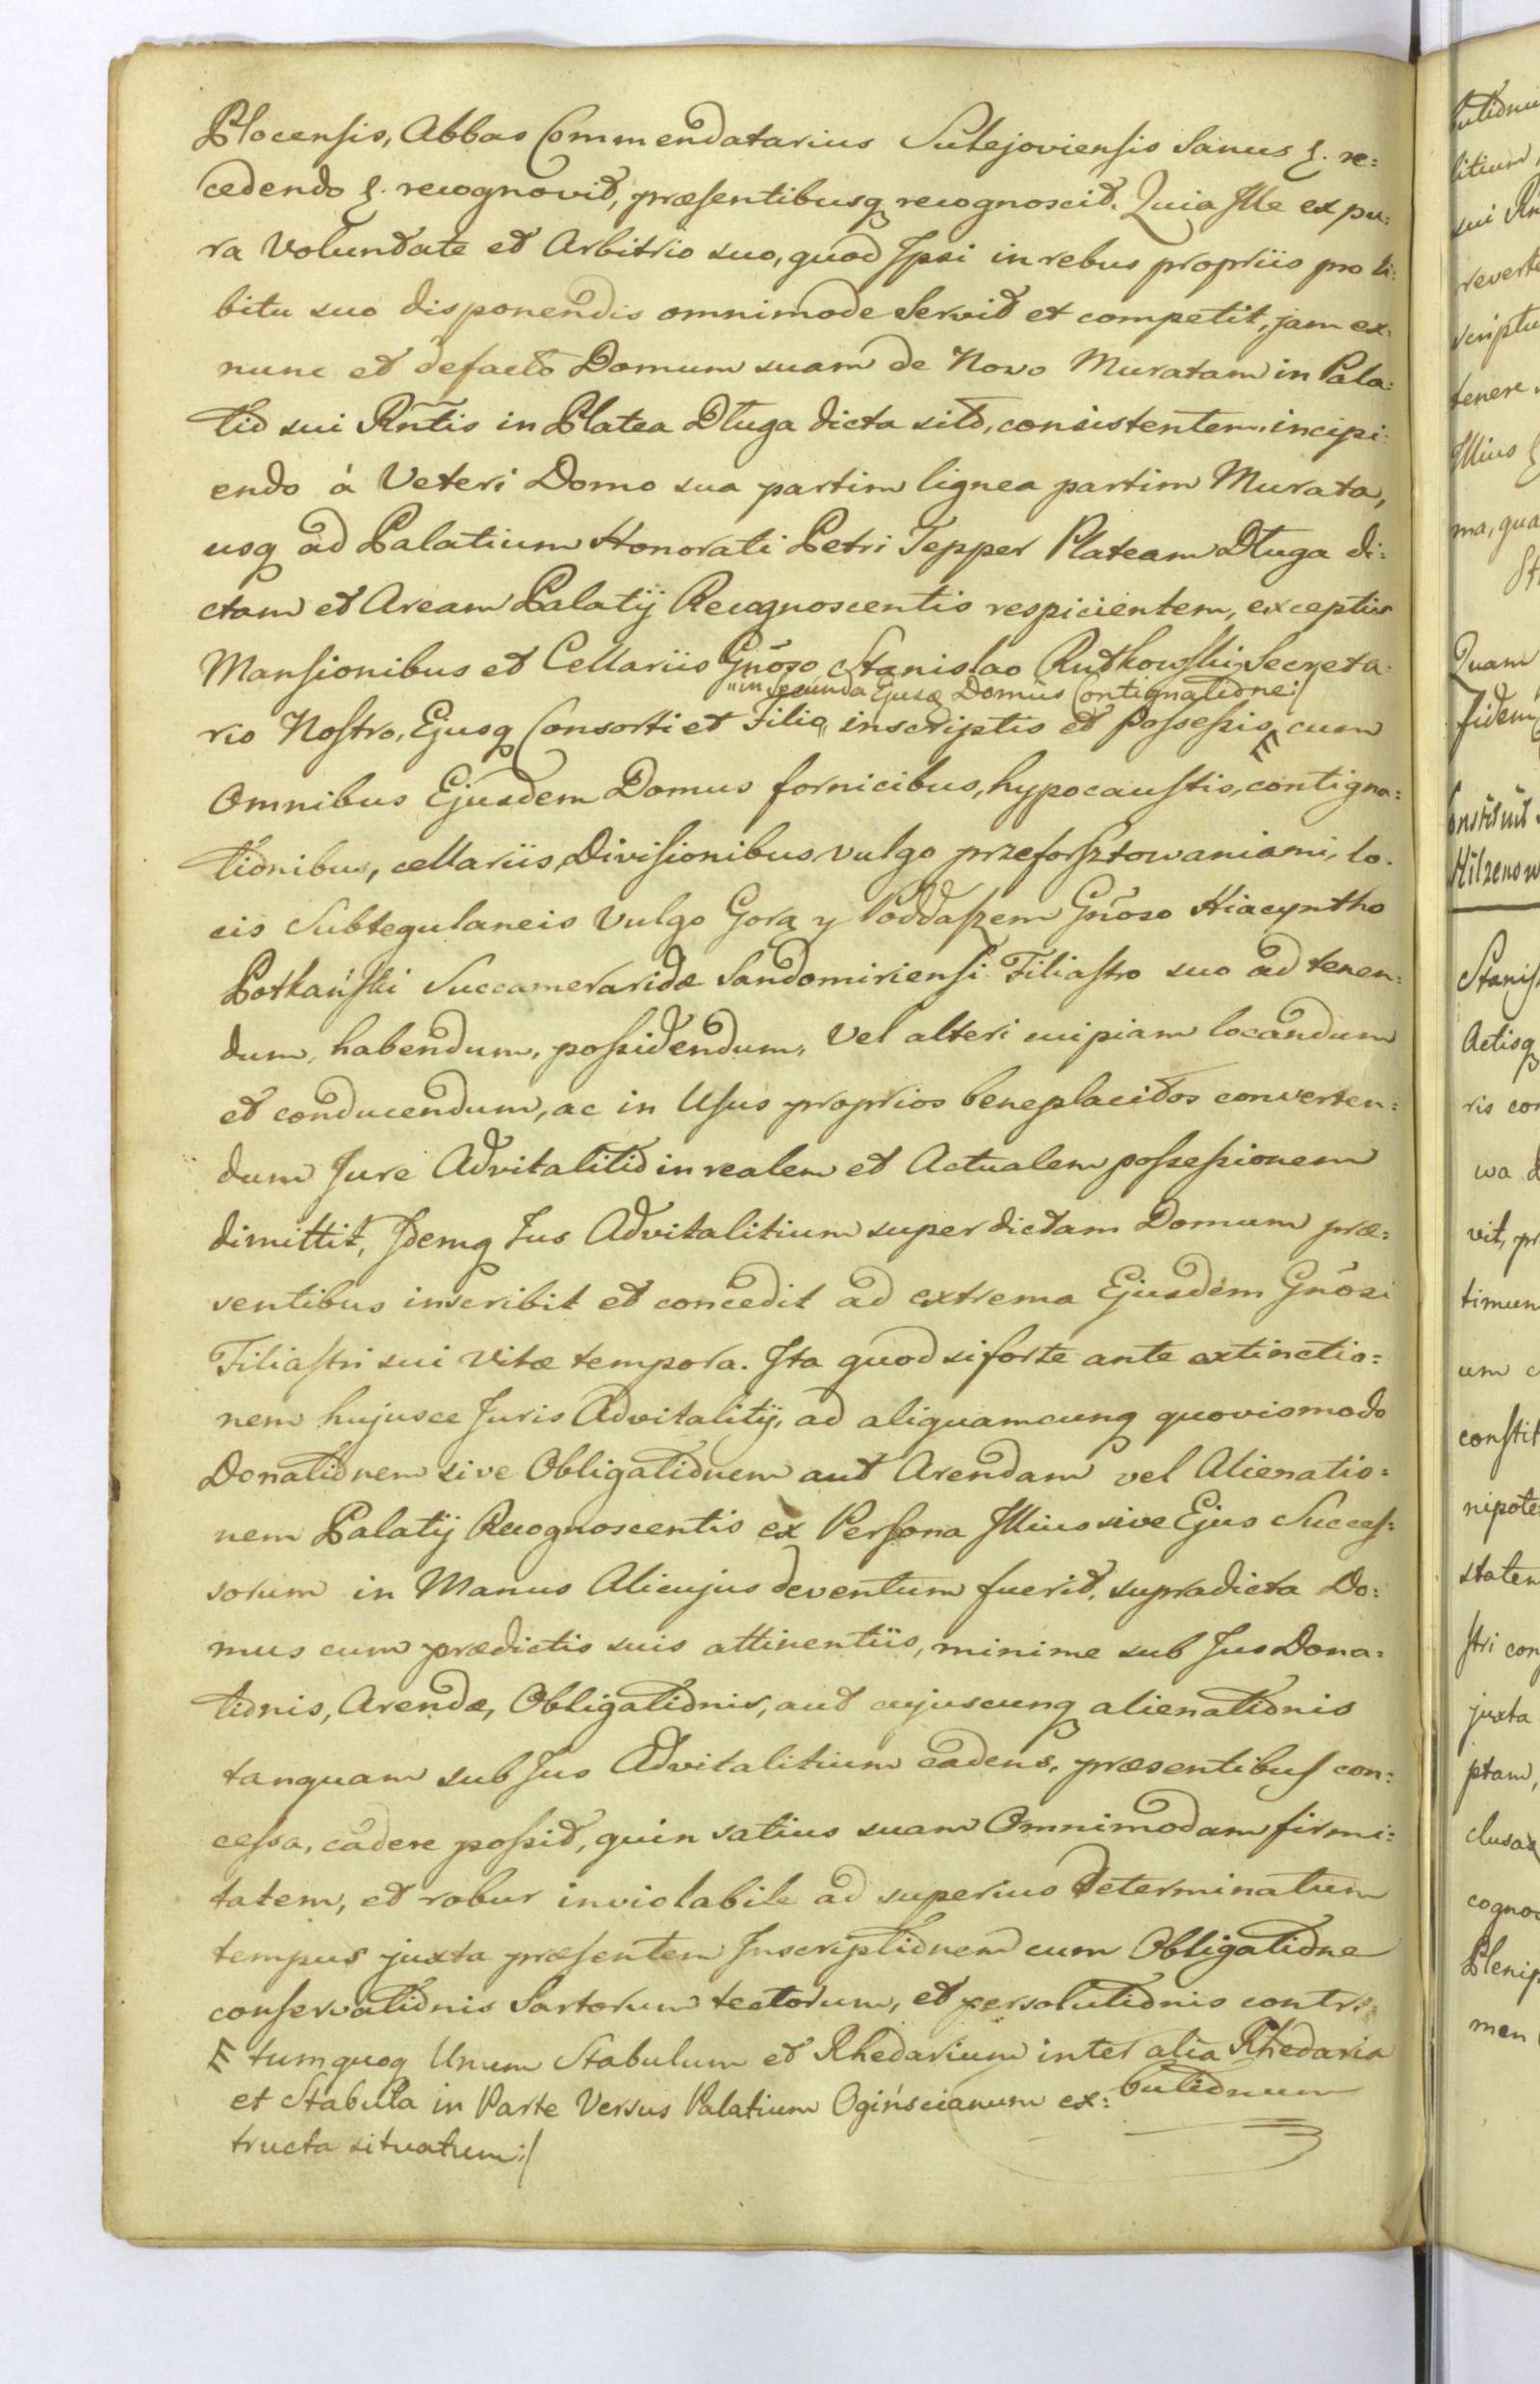 Plocensis, Abbas Commendatarius Sulejoviensis Sanus &. re:
cedendo &. recognovit, præsentibusq recognoscit. Quia Ille ex pu:
ra Voluntate et Arbitrio suo, quod Ipsi in rebus propriis pro li:
bitu suo disponendis omnimode Servit et competit, jam ex:
nunc et defacto Domum suam de Novo Muratam in Pala:
tio sui Rntis in Platea Długa dicta sito, consistentem, incipi:
endo á Veteri Domo sua partim lignea partim Murata,
usq ad Palatium Honorati Petri Tepper Plateam Długa di:
ctam et Aream Palatij Recognoscentis respicientem, exceptis
Mansionibus et Cellariis Gnõso Stanislao Rutkowski Secreta:
"in Secunda Ejusq Domûs Contignatione:/
rio Nostro, Ejusq Consorti et Filio" inscriptis et possessis, cum
Omnibus Ejusdem Domus fornicibus, hypocaustis, contigna:
tionibus, cellariis, Divisionibus vulgo przeforsztowaniami, lo:
cis Subtegulaneis Vulgo Gorą y Poddaszem Gnõso Hiacyntho
Potkański Succameraridæ Sandomiriensi Filiastro suo ad tenen:
dum, habendum, possidendum, Vel alteri cuipiam locandum
et conducendum, ac in Usus proprios beneplacitos converten:
dum Jure Advitalitio in realem et Actualem possessionem
dimittit, Idemq Jus Advitalitium super dictam Domum præ:
sentibus inscribit et concedit ad extrema Ejusdem Gnõsi
Filiastri sui Vitæ tempora. Ita quod si forte ante extinctio:
nem hujusce Juris Advitalitij, ad aliquamcunq quovismodo
Donationem sive Obligationem aut Arendam vel Alienatio:
nem Palatij Recognoscentis ex Persona Illius sive Ejus Succes:
sorum in Manus Alicujus deventum fuerit, supradicta Do:
mus cum prædictis suis attinentiis, minime sub Jus Dona:
tionis, Arendæ, Obligationis, aut cujuscunq alienationis
tanquam sub Jus Advitalitium cadens, præsentibus con:
cessa, cadere possit, quin satius suam Omnimodam firmi:
tatem, et robur inviolabile ad superius determinatum
tempus juxta præsentem Inscriptionem cum Obligatione
conservationis Sartorum tectorum, et persolutionis contri:
butionum
tum quoq Unum Stabulum et Rhedarium inter alia Rhedaria
et Stabulla in Parte Versus Palatium Ogińscianum ex:
tructa situatum:/